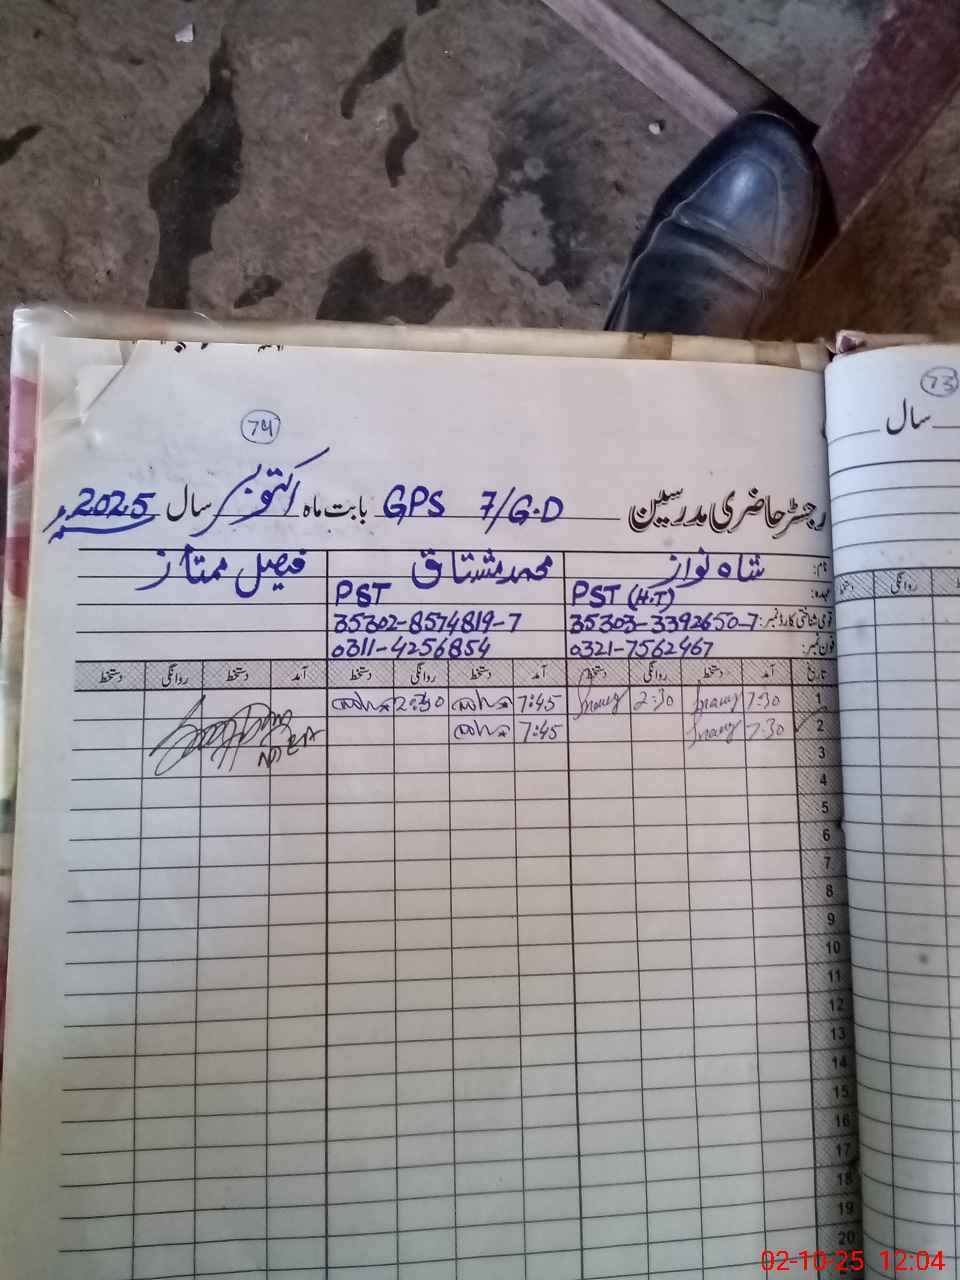 74
73
رجسٹر حاضری مدرسین GPS 7/G.D بابت ماہ اکتوبر سال 2025ء
سال
نام: شاہ نواز محمد مشتاق فیصل ممتاز
عہدہ: PST (H.T) PST
قومی شناختی کارڈ نمبر: 35303-3392650-7 35302-8574819-7
فون نمبر: 0321-7562467 0311-4256854
تاریخ آمد دستخط روانگی دستخط آمد دستخط روانگی دستخط آمد دستخط روانگی دستخط
روانگی دستخط
1 7:30 2:30 7:45 2:30
2 7:30 7:45
3
4
5
6
7
8
9
10
11
12
13
14
15
16
17
18
19
20
02-10-25 12:04